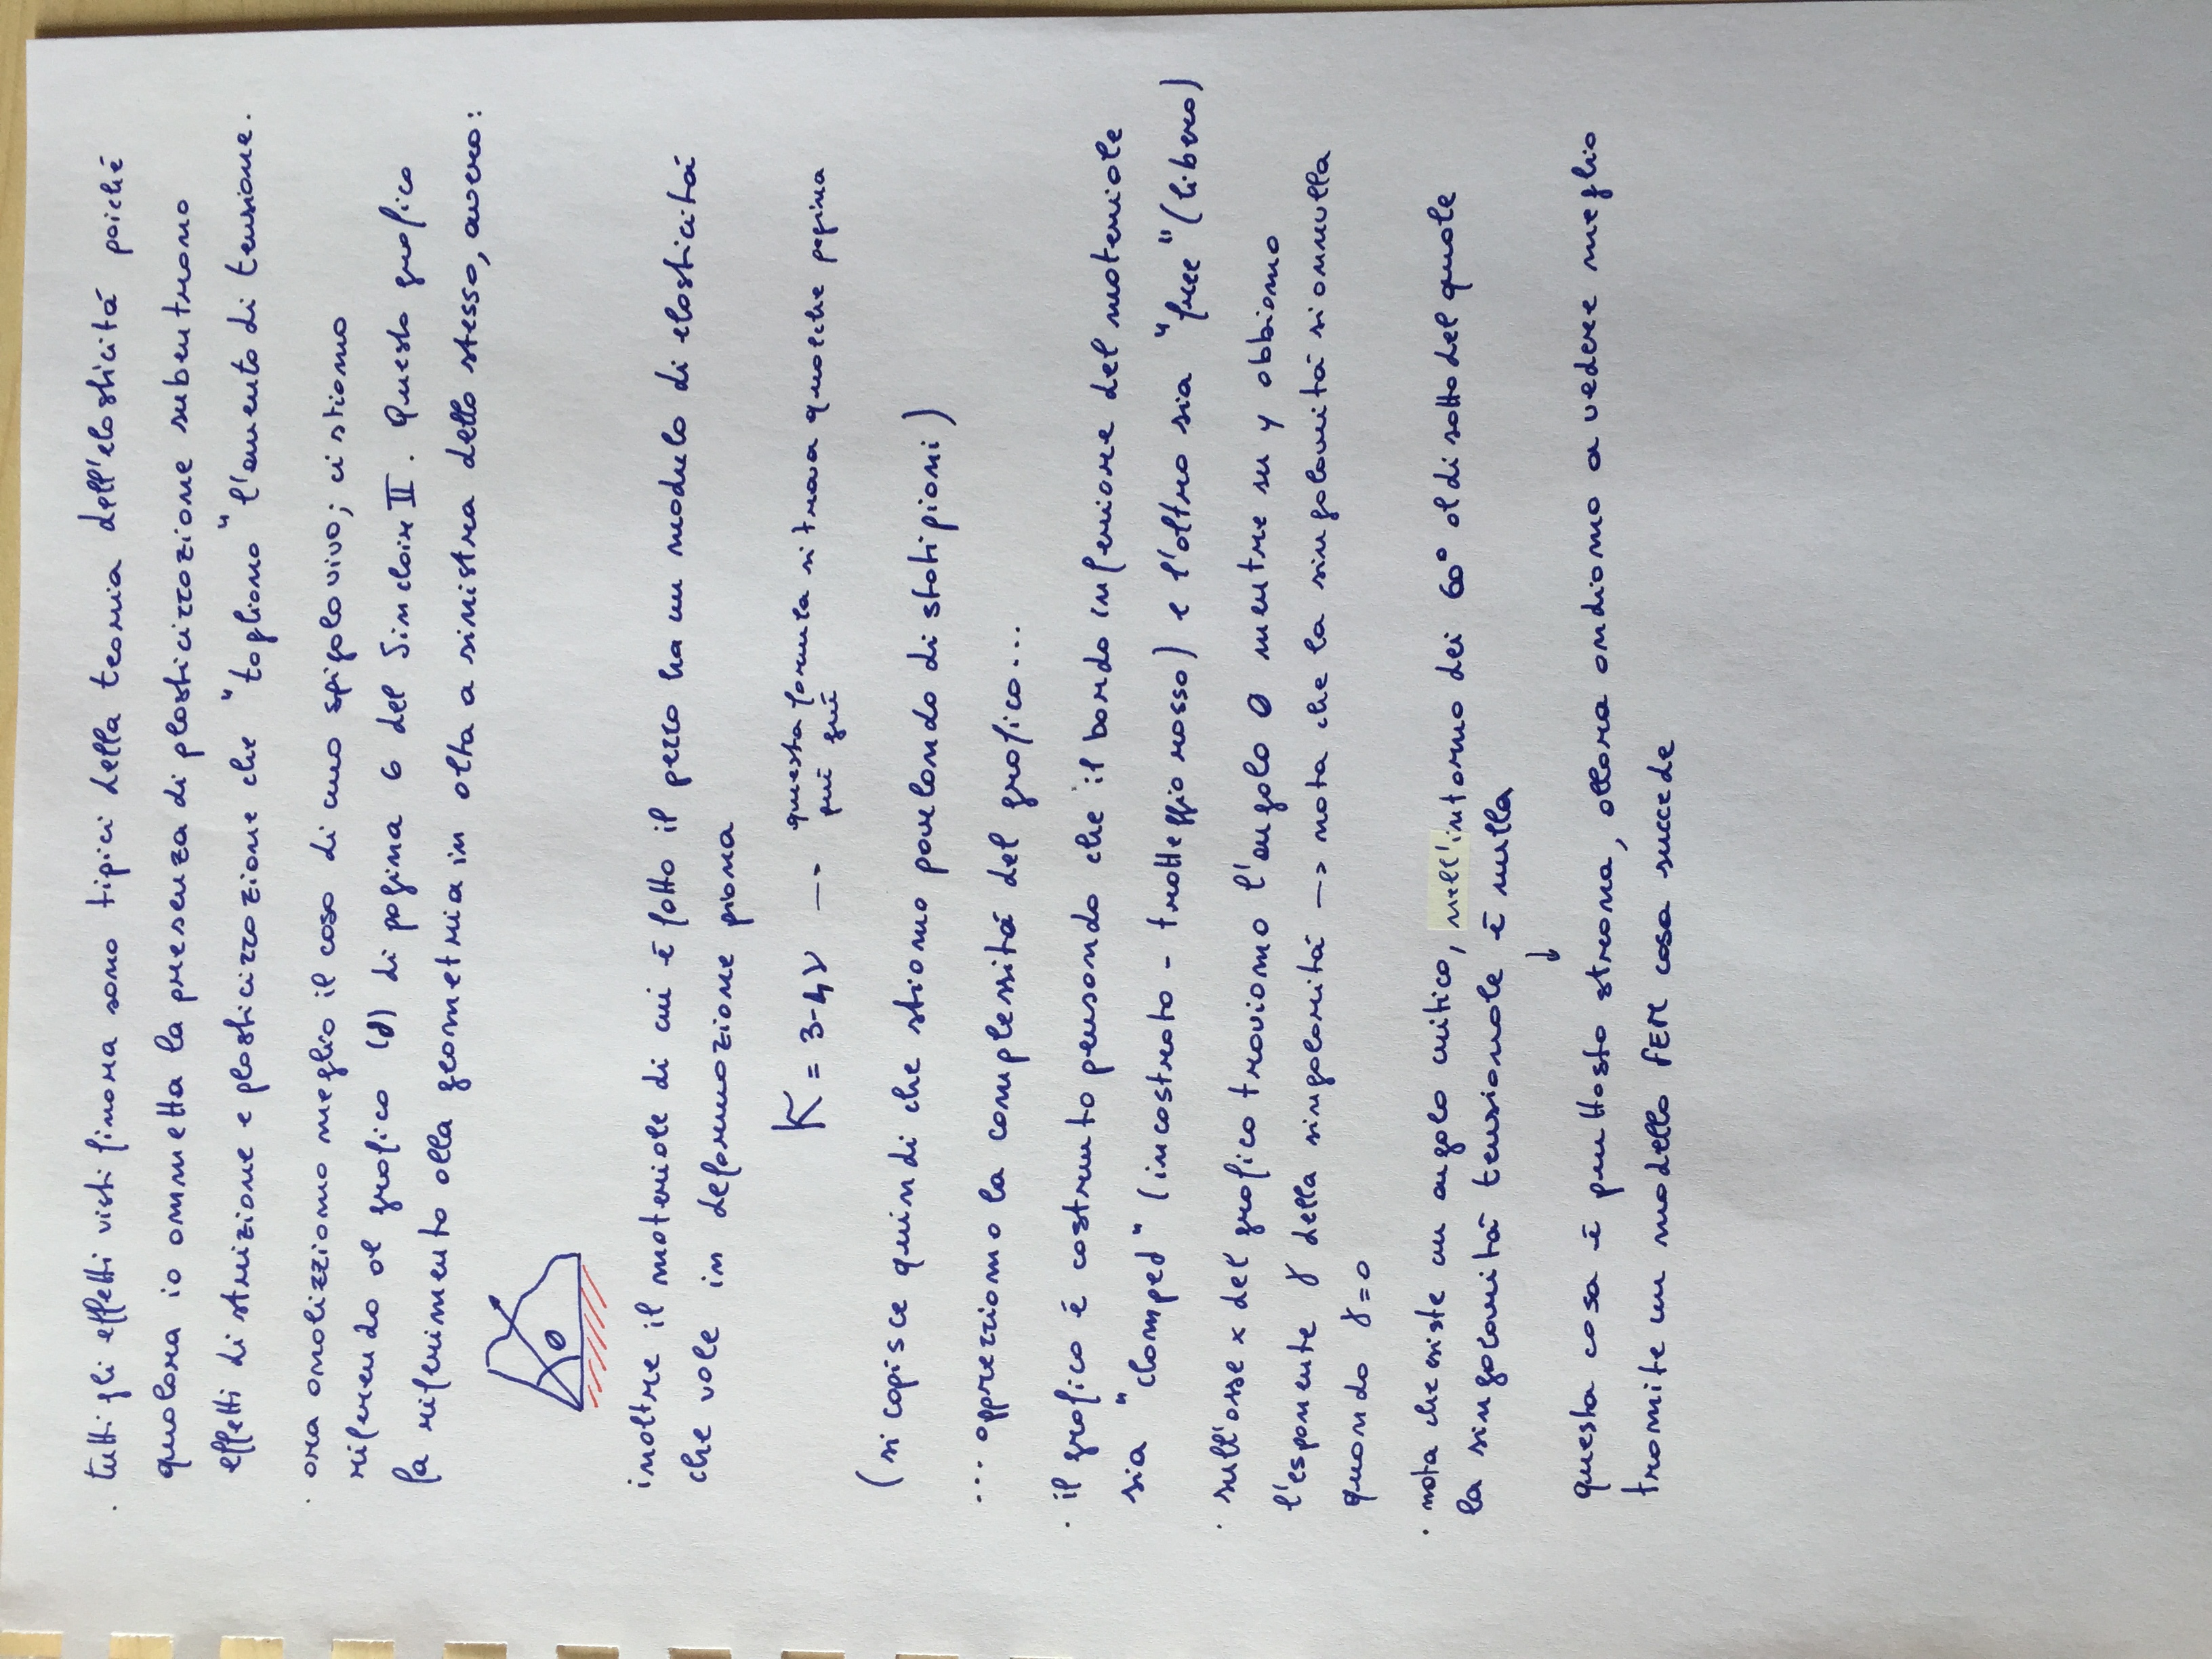 · tutti gli effetti visti finora sono tipici della teoria dell'elasticitá poiché
qualora io ommetta la presenza di plasticizzazione subentrano
effetti di strizione e plasticizzazione che "togliono" l'aumento di tensione.
· ora analizziamo meglio il caso di uno spigolo vivo; ci stiamo
riferendo al grafico (d) di pagina 6 del Sinclair II. Questo grafico
fa riferimento alla geometria in alta a sinistra dello stesso, ovvero:
θ
inoltre il materiale di cui é fatto il pezzo ha un modulo di elasticitá
che vale in deformazione piana
K = 3-4ν → questa formula si trova qualche pagina
piú giú
(si capisce quindi di che stiamo parlando di stati piani)
... apprezziamo la complessitá del grafico...
· il grafico é costruito pensando che il bordo inferiore del materiale
sia "clamped" (incastrato - tratteggio rosso) e l'altro sia "free" (libero)
· sull'asse x del grafico troviamo l'angolo θ mentre su y abbiamo
l'esponente γ della singolaritá → nota che la singolaritá si annulla
quando γ=0
· nota che esiste un angolo critico, nell'intorno dei 60° al di sotto del quale
la singolaritá tensionale é nulla
↓
questa cosa é piuttosto strana, allora andiamo a vedere meglio
tramite un modello FEM cosa succede